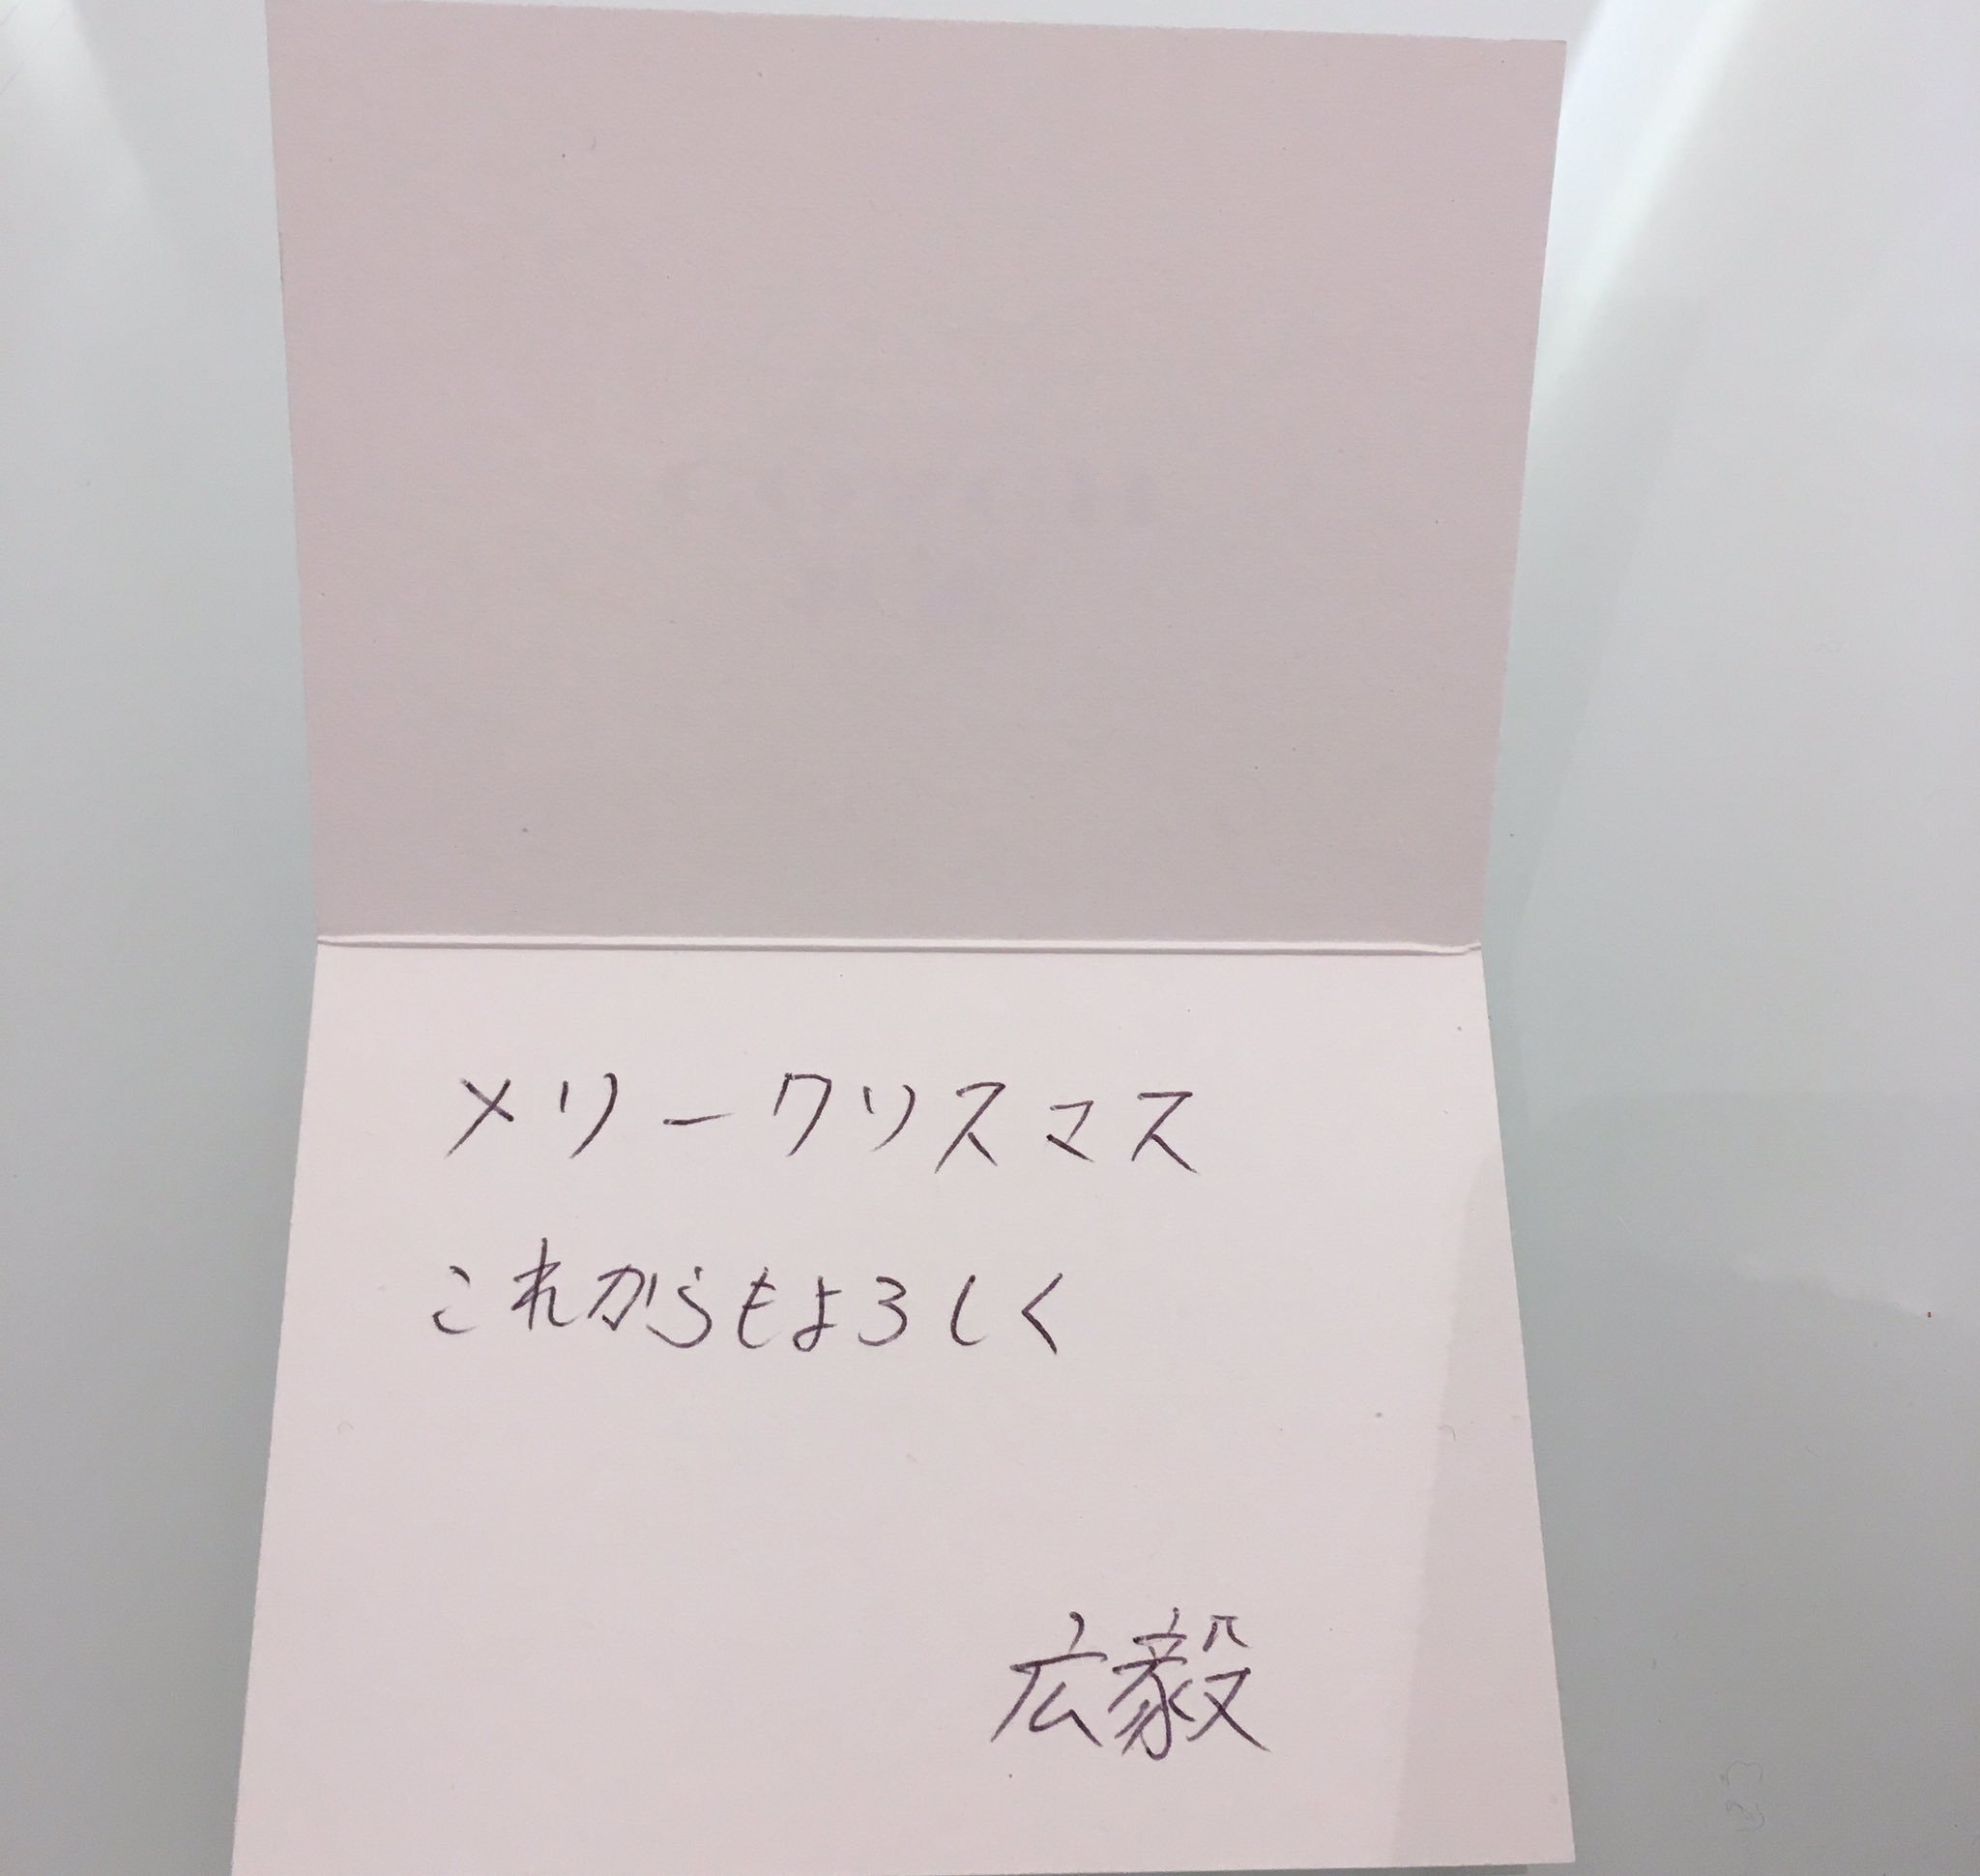 メリークリスマス
これからもよろしく
広毅